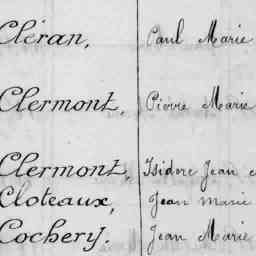 Cléran, Paul Marie
Clermont, Pierre Marie
Clermont, Isidore Jean
Cloteaux, Jean Marie
Cochery. Jean Marie